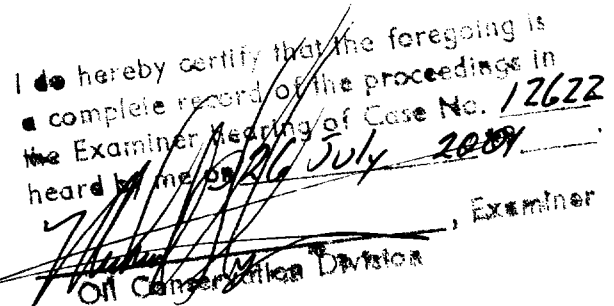 I do hereby certify that the foregoing is
a complete record of the proceedings in
the Examiner hearing of Case No. 12622
heard by me on 26 July 2001.
, Examiner
Oil Conservation Division